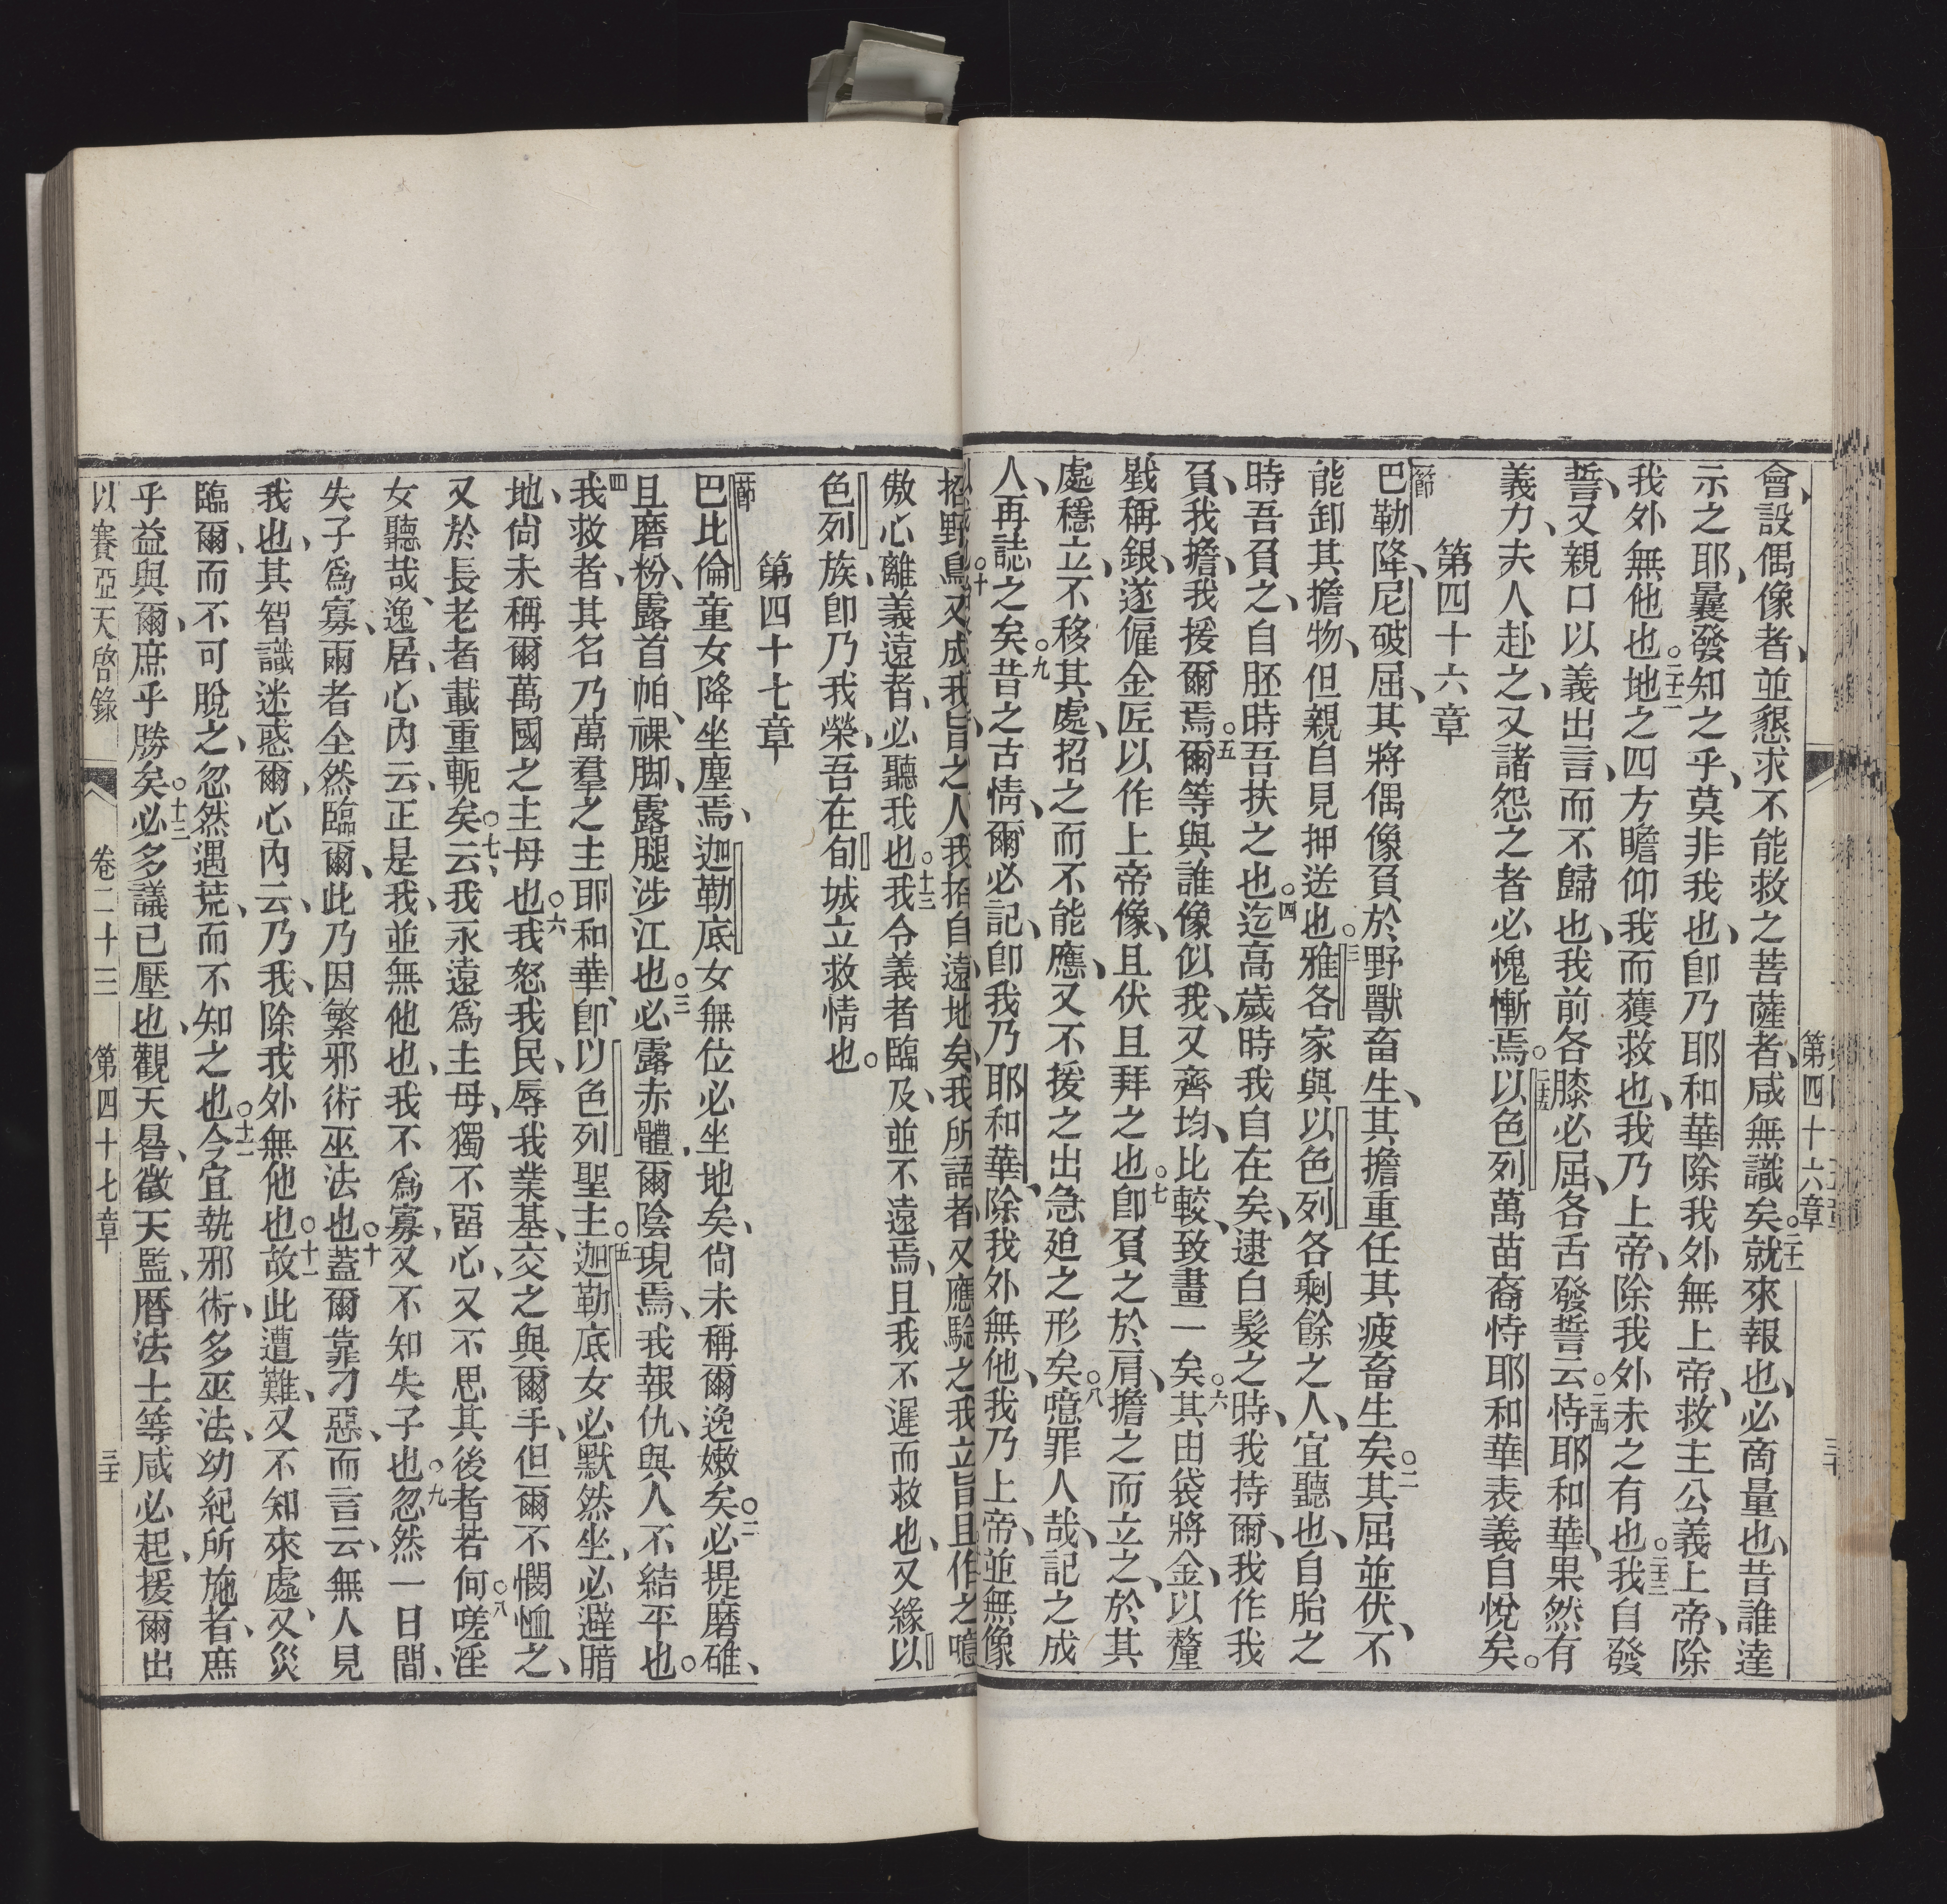 第四十六章
會、設偶像者、並懇求不能救之菩薩者、咸無識矣。二十一就來報也、必商量也、昔誰達
示之耶、曩發知之乎、莫非我也、卽乃耶和華除我外無上帝、救主公義上帝、除
我外無他也。二十二地之四方瞻仰我而獲救也、我乃上帝、除我外未之有也。二十三我自發
誓、又親口以義出言、而不歸也、我前各膝必屈、各舌發誓云。二十四恃耶和華、果然有
義力、夫人赴之、又諸怨之者必愧慚焉。二十五以色列萬苗裔恃耶和華表義自悅矣。
第四十六章
一節巴勒降、尼破屈、其將偶像負於野獸畜生、其擔重任其疲畜生矣。二其屈並伏、不
能卸其擔物、但親自見押送也。三雅各家與以色列各剩餘之人、宜聽也、自胎之
時吾負之、自胚時吾扶之也。四迄高歲時我自在矣、逮白髮之時、我持爾、我作我
負、我擔、我援爾焉。五爾等與誰像似我、又齊均、比較、致畫一矣。六其由袋將金、以釐
戥稱銀、遂僱金匠以作上帝像、且伏且拜之也。七卽負之於肩、擔之而立之、於其
處穩立、不移其處、招之而不能應、又不援之出急廹之形矣。八噫罪人哉、記之成
人、再誌之矣。九昔之古情、爾必記、卽我乃耶和華、除我外無他、我乃上帝、並無像
招野鳥、又成我旨之人我招自遠地矣、我所語者又應驗之我立旨且作之。噫
傲心離義遠者、必聽我也。十三我令義者臨及、並不遠焉、且我不遲而救也、又緣以
色列族、卽乃我榮、吾在旬城立救情也。
第四十七章
一節巴比倫童女降坐塵焉、迦勒底女無位必坐地矣、尙未稱爾逸嫩矣。二必提磨碓、
且磨粉、露首帕、祼脚、露腿涉江也。三必露赤體、爾陰現焉、我報仇、與人不結平也。
四我救者、其名乃萬羣之主耶和華、卽以色列聖主。五迦勒底女必默然坐、必避暗
地、尙未稱爾萬國之主母也。六我怒我民、辱我業基、交之與爾手、但爾不憫恤之、
又於長老者載重軛矣。七云、我永遠爲主母、獨不畱心、又不思其後者若何。八嗟淫
女聽哉、逸居、心內云、正是我、並無他也、我不爲寡、又不知失子也。九忽然一日間、
失子爲寡、兩者全然臨爾、此乃因繁邪術巫法也。十蓋爾靠刁惡、而言云、無人見
我也、其智識迷惑爾、心內云、乃我、除我外無他也。十一故此遭難、又不知來處、又災
臨爾、而不可脫之、忽然遇荒、而不知之也。十二今宜執邪術、多巫法、幼紀所施者、庶
乎益與爾、庶乎勝矣。十三必多議已壓也、觀天晷、徵天監、曆法士等咸必起、援爾出
以賽亞天啓錄 卷二十三 第四十七章